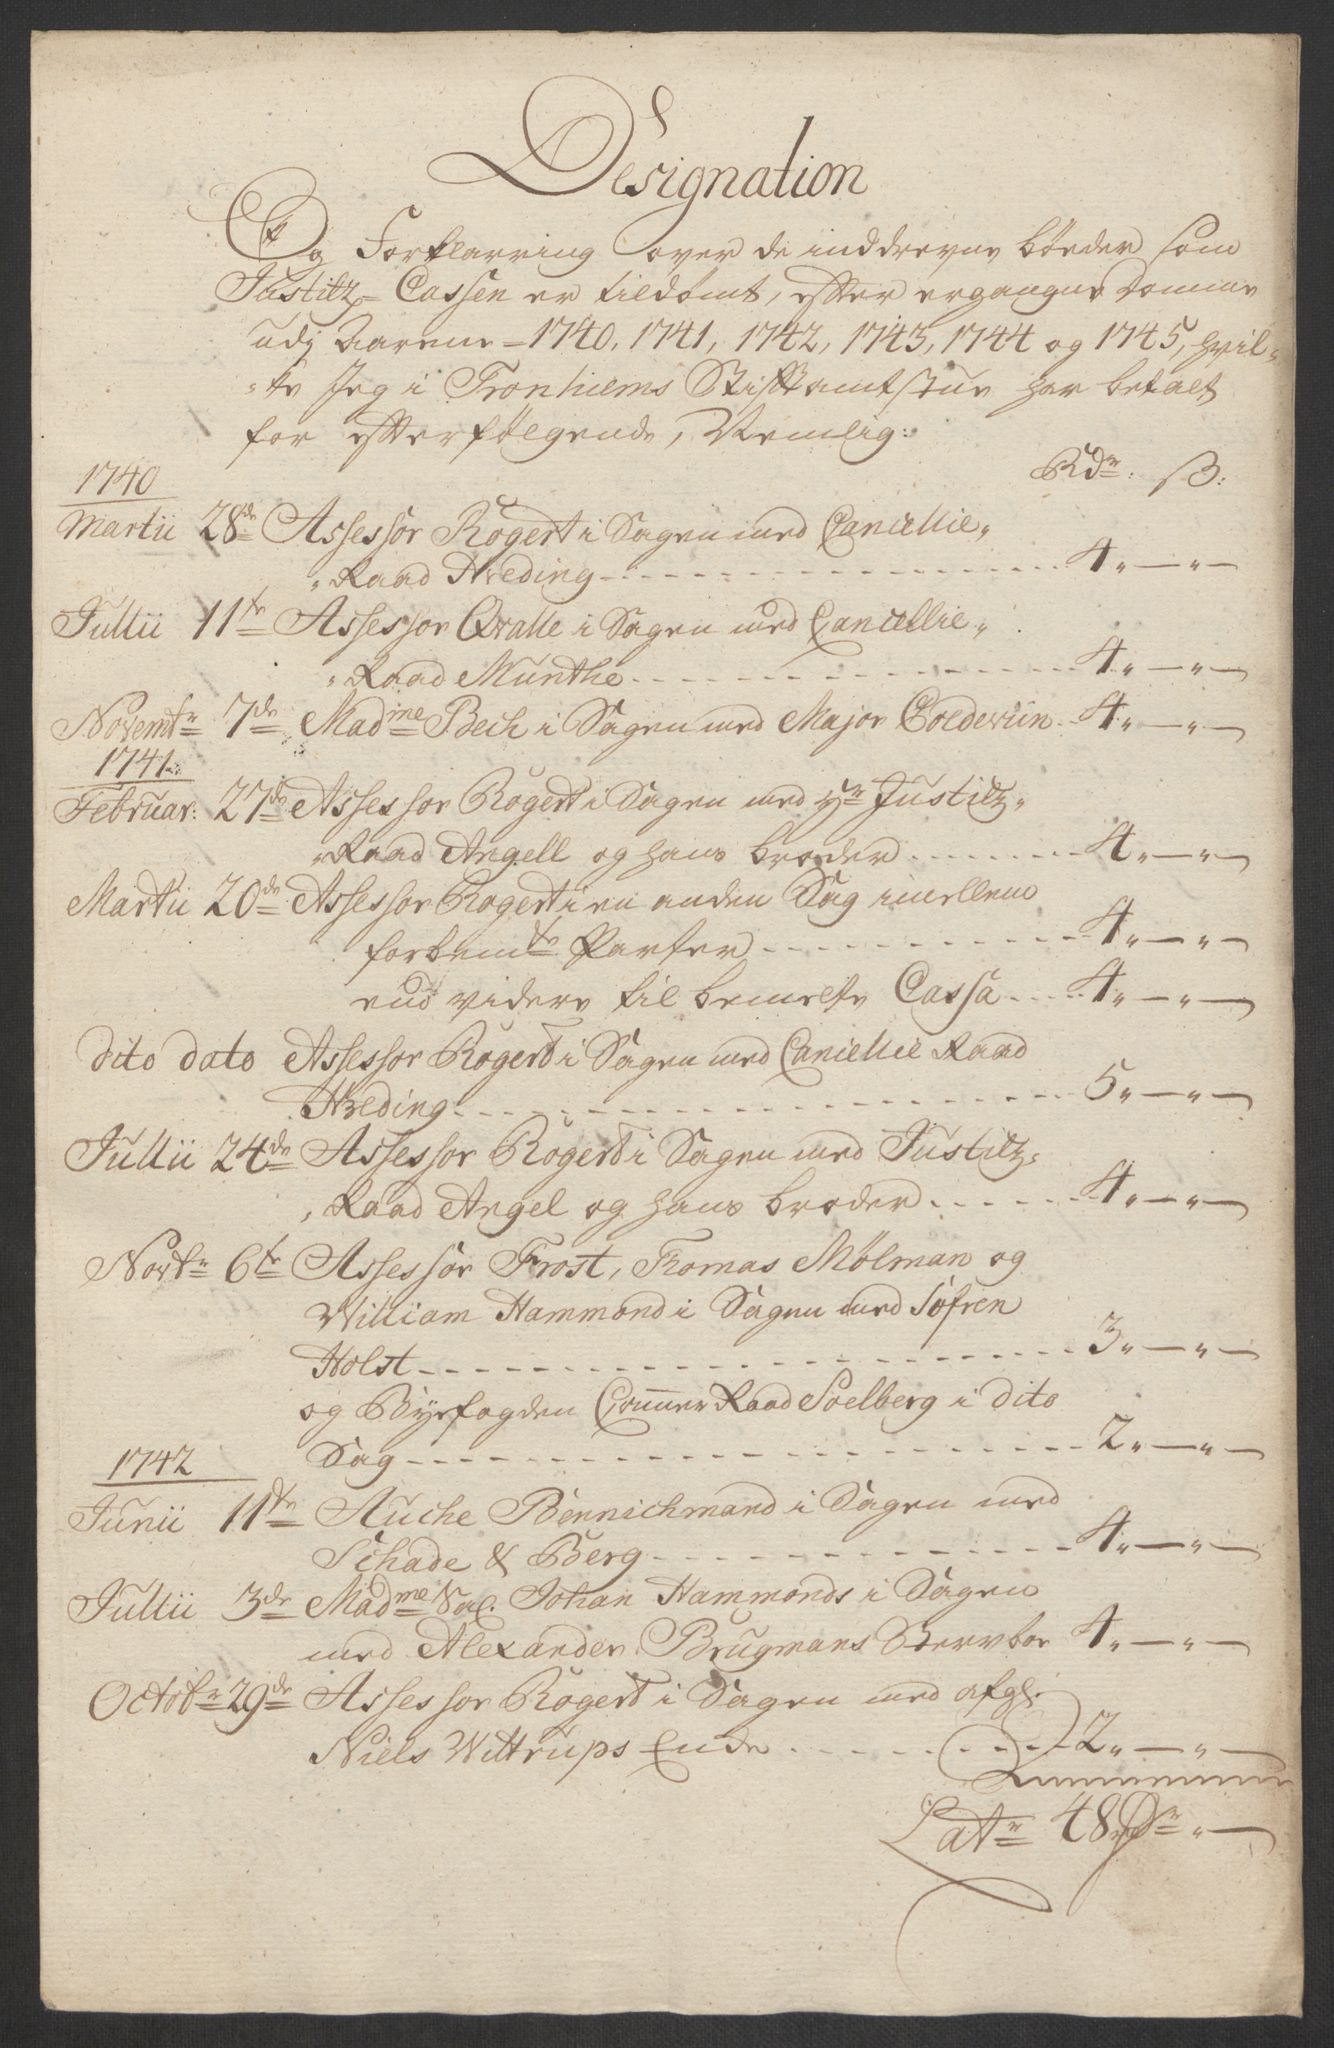 Designation
Og Forklarring over de inddrevne bøeder som
Justitz-Cassen er tildømt, efter ergangne Domme
udj Aarene-1740, 1741, 1742, 1743, 1744 og 1745, hvil-
-ke Jeg i Tronhiems Stiftamtstue har betalt
for efterfølgende, Nemlig:
Rdr: ß:
1740
Martii 28de Assessor Rogert i Sagen med Cancellie-
-Raad Hveding 4 " — " —
Julii 11te Assessor Qvalle i Sagen med Cancellie-
-Raad Munthe 4 " — " —
Novembr 7de Madme Bech i Sagen med Major Coldeviin 4 " — " —
1741
Februar: 27de Assessor Rogert i Sagen med Hr Justitz-
-Raad Angell og hans broder 4 " — " —
Martii 20de Assessor Rogert i en anden Sag imellem
forbemte Parter 4 " — " —
end videre til bemelte Cassa 4 " — " —
dito dato Assessor Rogert i Sagen med Cancellie Raad
Hveding 5 " — " —
Julii 24de Assessor Rogert i Sagen med Justitz-
-Raad Angel og hans broder 4 " — " —
Novbr 6te Assessor Frost, Tomas Mølman og
William Hammond i Sagen med Søfren
Holst 3 " — " —
og Byefogden Commer Raad Soelberg i dito
Sag 2 " — " —
1742
Junii 11te Auche Bennichmand i Sagen med
Schade & Berg 4 " — " —
Julii 3de Madme Sal. Johan Hammonds i Sagen
med Alexander Brugmans Stervboe 4 " — " —
Octobr 29de Assessor Rogert i Sagen med afgl:
Niels Wittrups Enke 2 " — " —
Latr 48 rdr " —